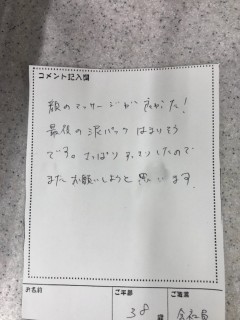 コメント記入欄
顔のマッサージが良かった!
最後の泥パックはまりそう
です。さっぱりすっきりしたので
またお願いしようと思います。
お名前
ご年齢
ご職業
38 歳
会社員